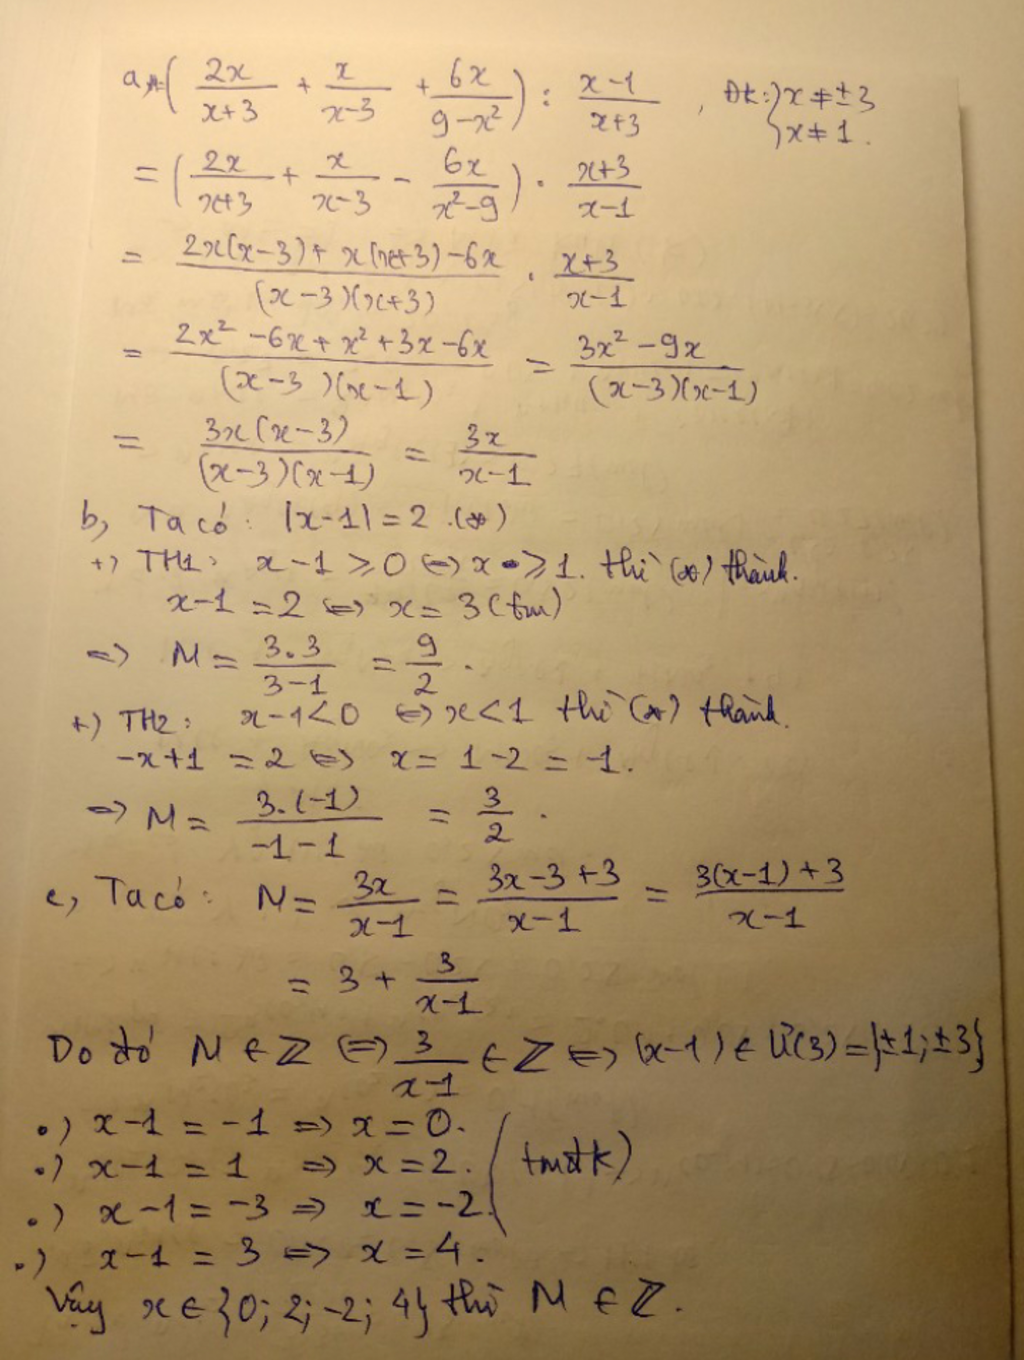 a, A=( 2x/(x+3) + x/(x-3) + 6x/(9-x²) ) : (x-1)/(x+3) , ĐK: { x ≠ ±3
{ x ≠ 1.
= ( 2x/(x+3) + x/(x-3) - 6x/(x²-9) ) . (x+3)/(x-1)
= (2x(x-3) + x(x+3) - 6x)/((x-3)(x+3)) . (x+3)/(x-1)
= (2x² - 6x + x² + 3x - 6x)/((x-3)(x-1)) = (3x² - 9x)/((x-3)(x-1))
= 3x(x-3)/((x-3)(x-1)) = 3x/(x-1)
b, Ta có: |x-1| = 2 .(*)
+) TH1: x-1 ≥ 0 ⇔ x ≥ 1. thì (*) thành.
x-1 = 2 ⇔ x = 3 (tm)
=> M = 3.3/(3-1) = 9/2 .
+) TH2: x-1 < 0 ⇔ x < 1 thì (*) thành.
-x+1 = 2 ⇔ x = 1-2 = -1.
=> M = 3.(-1)/(-1-1) = 3/2 .
c, Ta có: M = 3x/(x-1) = (3x-3+3)/(x-1) = (3(x-1)+3)/(x-1)
= 3 + 3/(x-1)
Do đó M ∈ Z ⇔ 3/(x-1) ∈ Z ⇔ (x-1) ∈ Ư(3) = {±1; ±3}
.) x-1 = -1 => x = 0.
.) x-1 = 1 => x = 2. (tmđk)
.) x-1 = -3 => x = -2.
.) x-1 = 3 => x = 4.
Vậy x ∈ {0; 2; -2; 4} thì M ∈ Z.